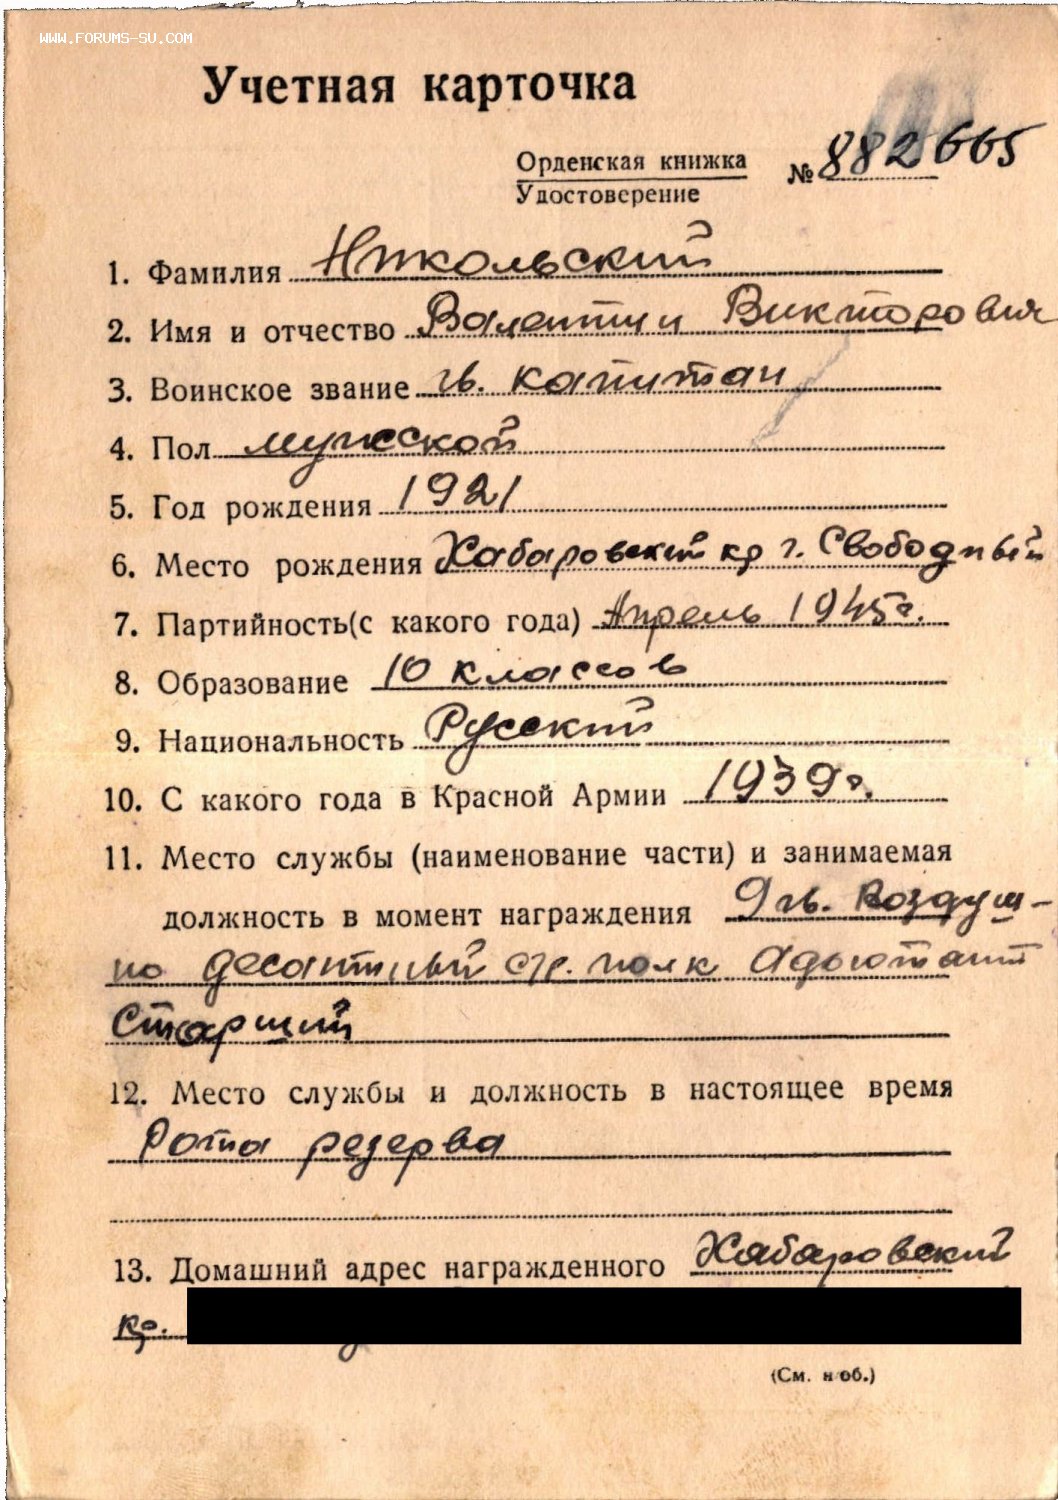 WWW.FORUMS-SU.COM
Учетная карточка
Орденская книжка
Удостоверение
№ 882665
1. Фамилия Никольский
2. Имя и отчество Валентин Викторович
3. Воинское звание гв. капитан
4. Пол мужской
5. Год рождения 1921
6. Место рождения Хабаровский кр г. Свободный
7. Партийность(с какого года) Апрель 1945г.
8. Образование 10 классов
9. Национальность Русский
10. С какого года в Красной Армии 1939г.
11. Место службы (наименование части) и занимаемая
должность в момент награждения 9 гв. воздуш-
но десантный стр. полк Адьютант
Старший
12. Место службы и должность в настоящее время
Рота резерва
13. Домашний адрес награжденного Хабаровский
кр.
(См. н об.)